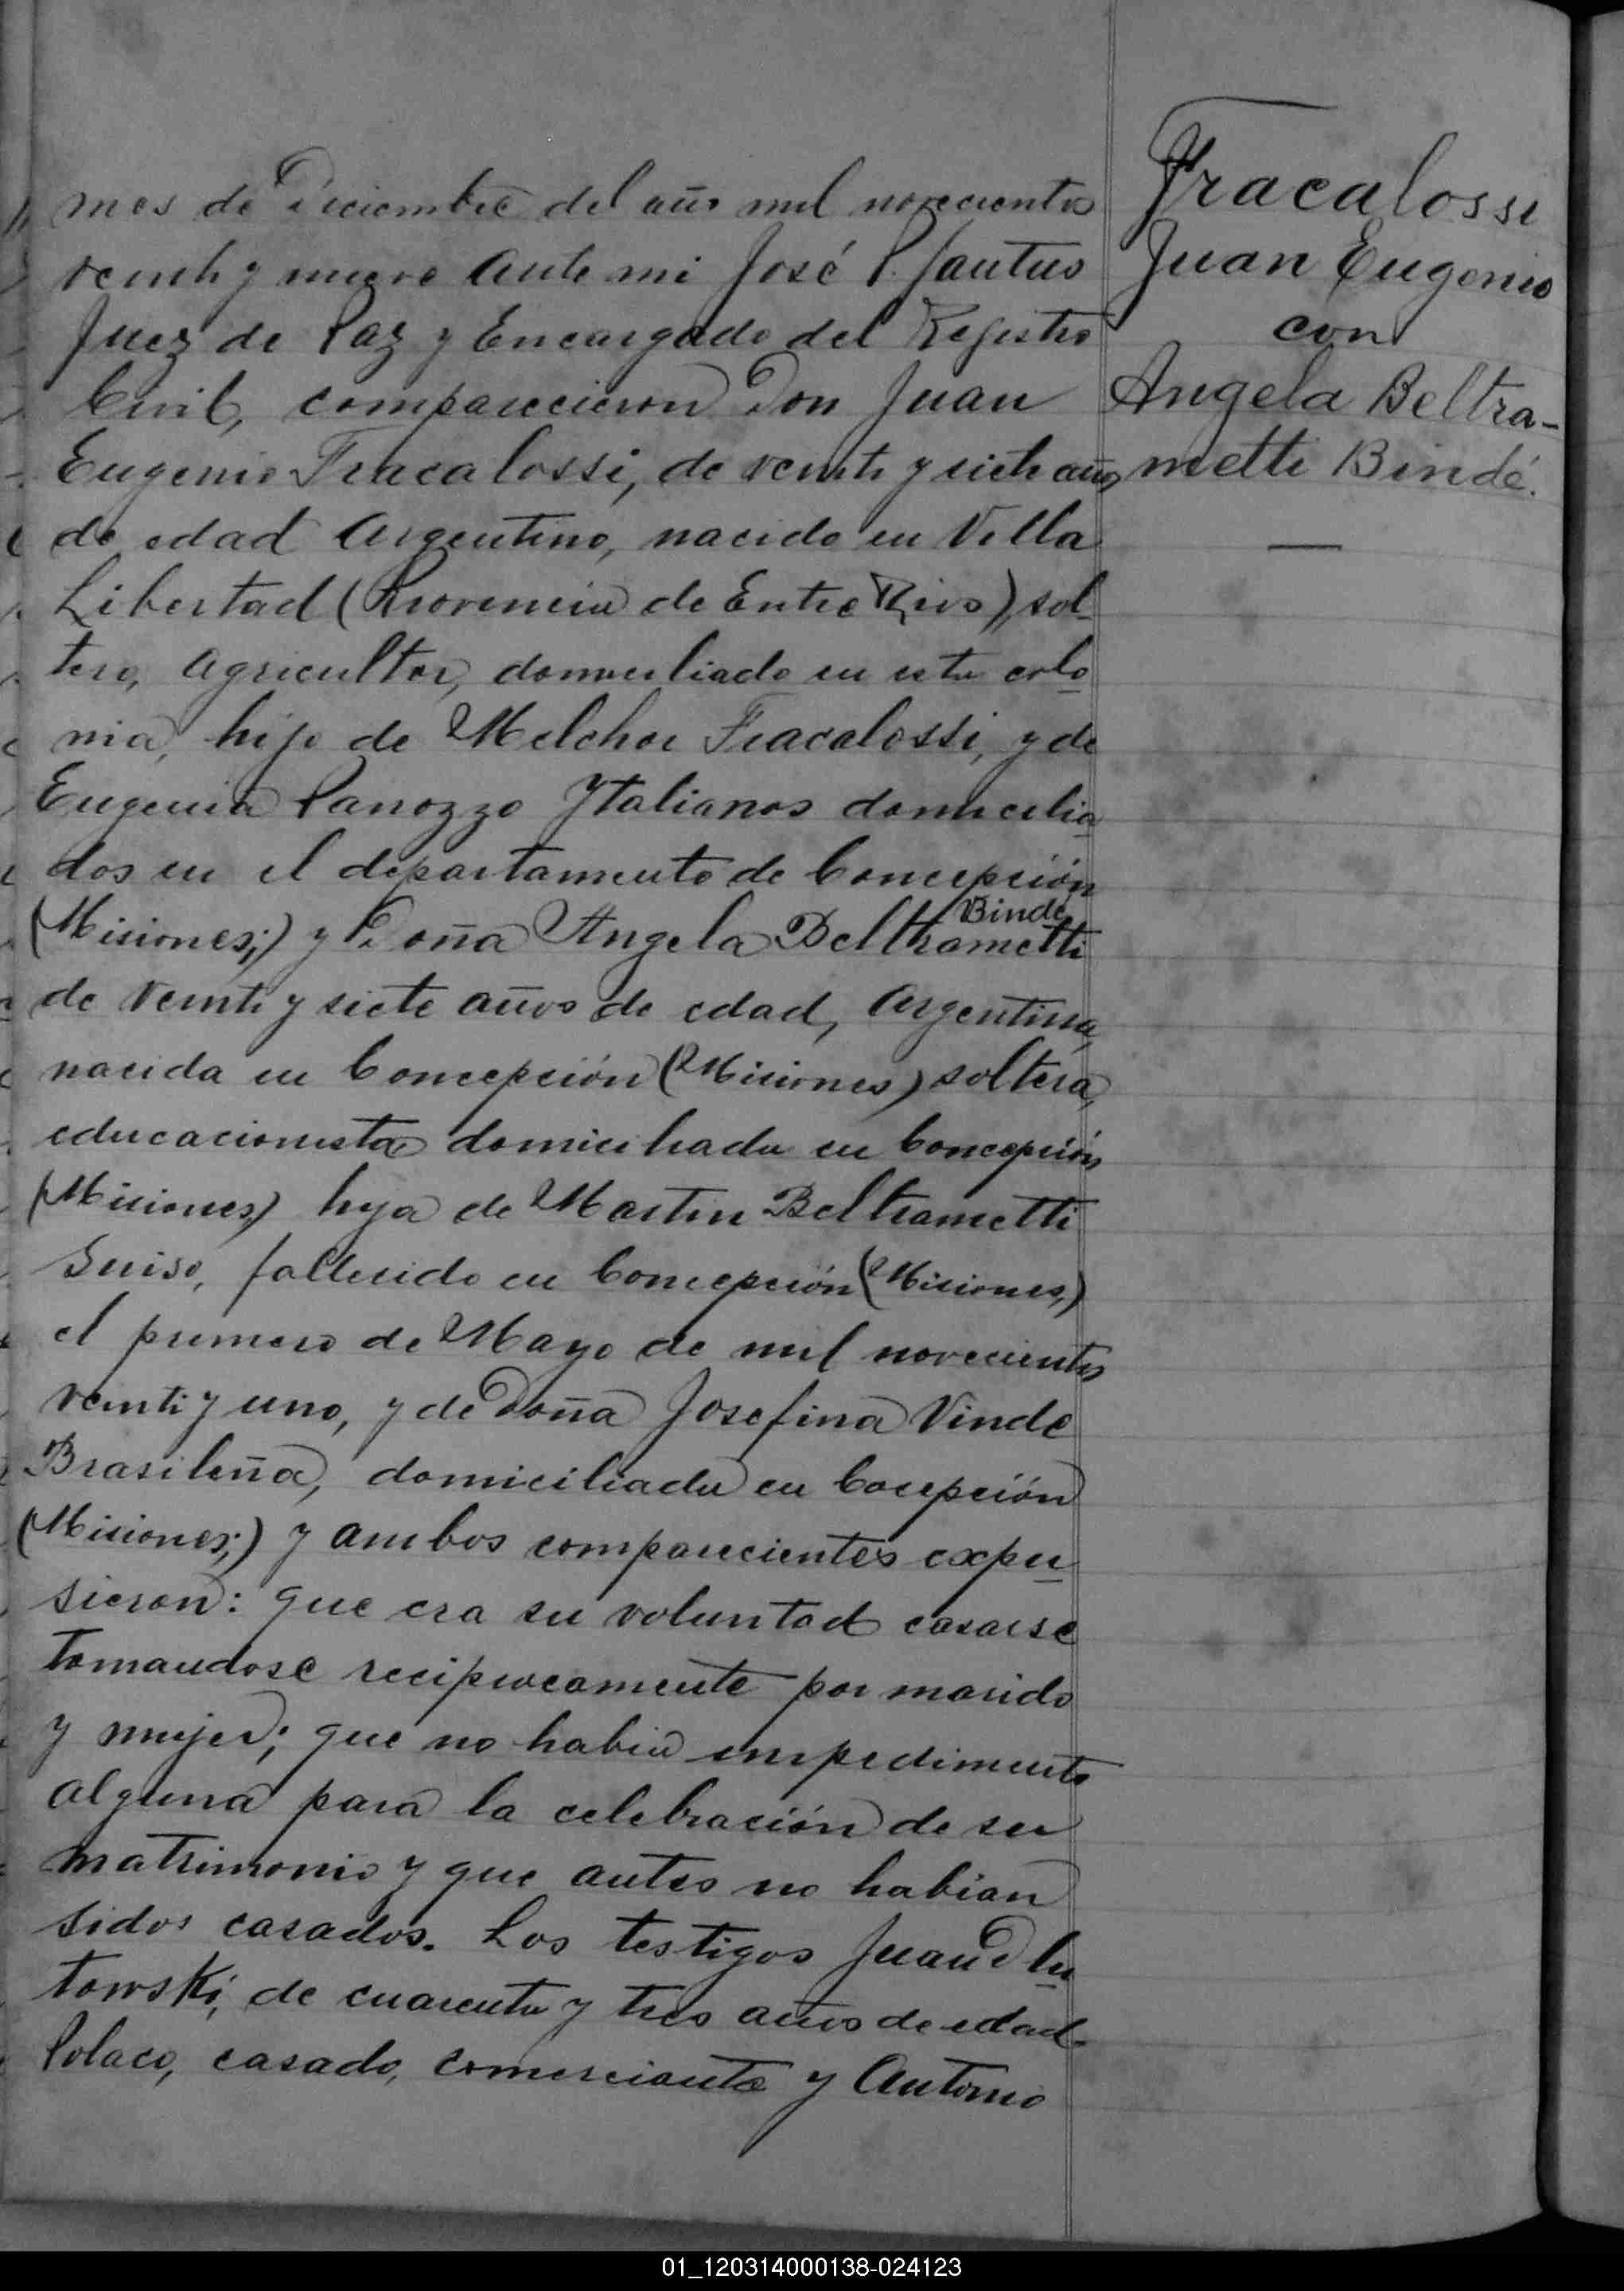 mes de Diciembre del año mil novecientos
veinti y nueve ante mi José P.
Juez de Paz y Encargado del Registro
Civil, comparecieron Don Juan
Eugenio Fracalossi, de veinti y siete años
de edad Argentino, nacido en Villa
Libertad (Provincia de Entre Rios), sol-
tero, agricultor, domiciliado en esta colo
nia, hijo de Melchor Fracalossi, y de
Eugenia Panozzo Ytalianos domicilia
dos en el departamento de Concepción
Binde
(Misiones;) y Doña Angela Beltrametti
de veinti y siete años de edad, Argentina,
nacida en Concepción (Misiones) soltera,
educacionista domiciliada en Concepción
(Misiones,) hija de Martin Beltrametti
Suiso, fallecido en Concepción (Misiones,)
el primero de Mayo de mil novecientos
veinti y uno, y de Doña Josefina Vinde
Brasileña, domiciliada en Cocepción
(Misiones;) y ambos comparecientes expu
sieron: que era su voluntad casarse
tomandose reciprocamente por marido
y mujer; que no habia impedimento
alguna para la celebración de su
matrimonio y que antes no habian
sidos casados. Los testigos Juan
towski, de cuarenta y tres años de edad
Polaco, casado, comerciante y Antonio
Fracalossi
Juan Eugenio
con
Angela Beltra-
metti Bindé.
01_120314000138-024123